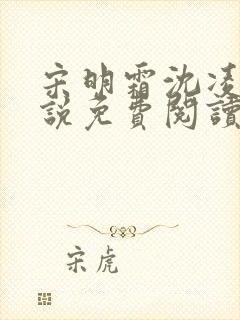 宋明霜沈凌
說免費閱讀
宋虎